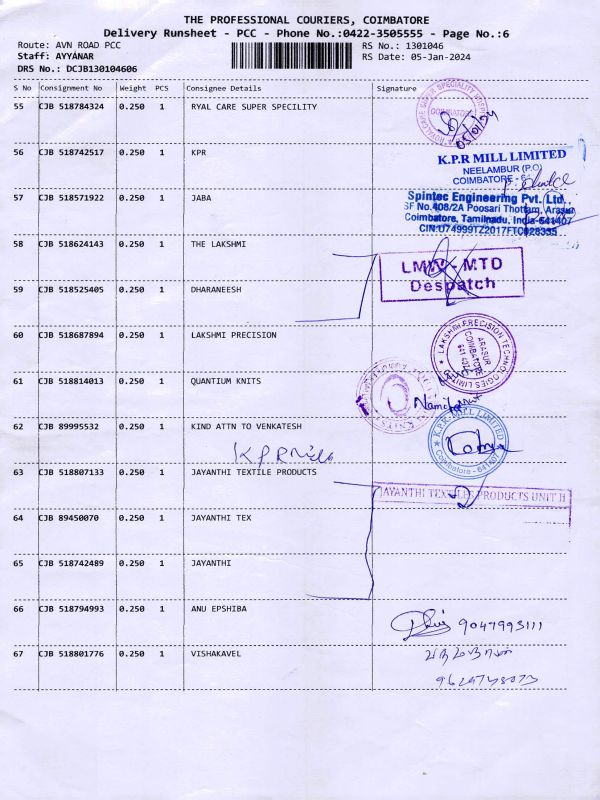 THE PROFESSIONAL COURIERS, COIMBATORE
Delivery Runsheet - PCC - Phone No.:0422-3505555 - Page No.:6
Route: AVN ROAD PCC
RS No.: 1301046
Staff: AYYANAR
RS Date: 05-Jan-2024
DRS No.: DCJB130104606
S No Consignment No Weight PCS Consignee Details Signature
55 CJB 518784324 0.250 1 RYAL CARE SUPER SPECILITY
COIMBATORE
56 CJB 518742517 0.250 1 KPR
K.P.R MILL LIMITED
NEELAMBUR (P.O)
COIMBATORE - 641
57 CJB 518571922 0.250 1 JABA
Spintec Engineering Pvt. Ltd.,
SF No.408/2A Poosari Thottam, Arasur
Coimbatore, Tamilnadu, India-641407
CIN:U74999TZ2017FTC028335
58 CJB 518624143 0.250 1 THE LAKSHMI
LMW - MTD
Despatch
59 CJB 518525405 0.250 1 DHARANEESH
60 CJB 518687894 0.250 1 LAKSHMI PRECISION
LAKSHMI PRECISION TECHNOLOGIES LIMITED
ARASUR
COIMBATORE
641 407
61 CJB 518814013 0.250 1 QUANTIUM KNITS
62 CJB 89995532 0.250 1 KIND ATTN TO VENKATESH
K.P.R. MILL LIMITED
Coimbatore - 641407
KPR Mills
63 CJB 518807133 0.250 1 JAYANTHI TEXTILE PRODUCTS
JAYANTHI TEXTILE PRODUCTS UNIT II
64 CJB 89450070 0.250 1 JAYANTHI TEX
65 CJB 518742489 0.250 1 JAYANTHI
66 CJB 518794993 0.250 1 ANU EPSHIBA
9047993111
67 CJB 518801776 0.250 1 VISHAKAVEL